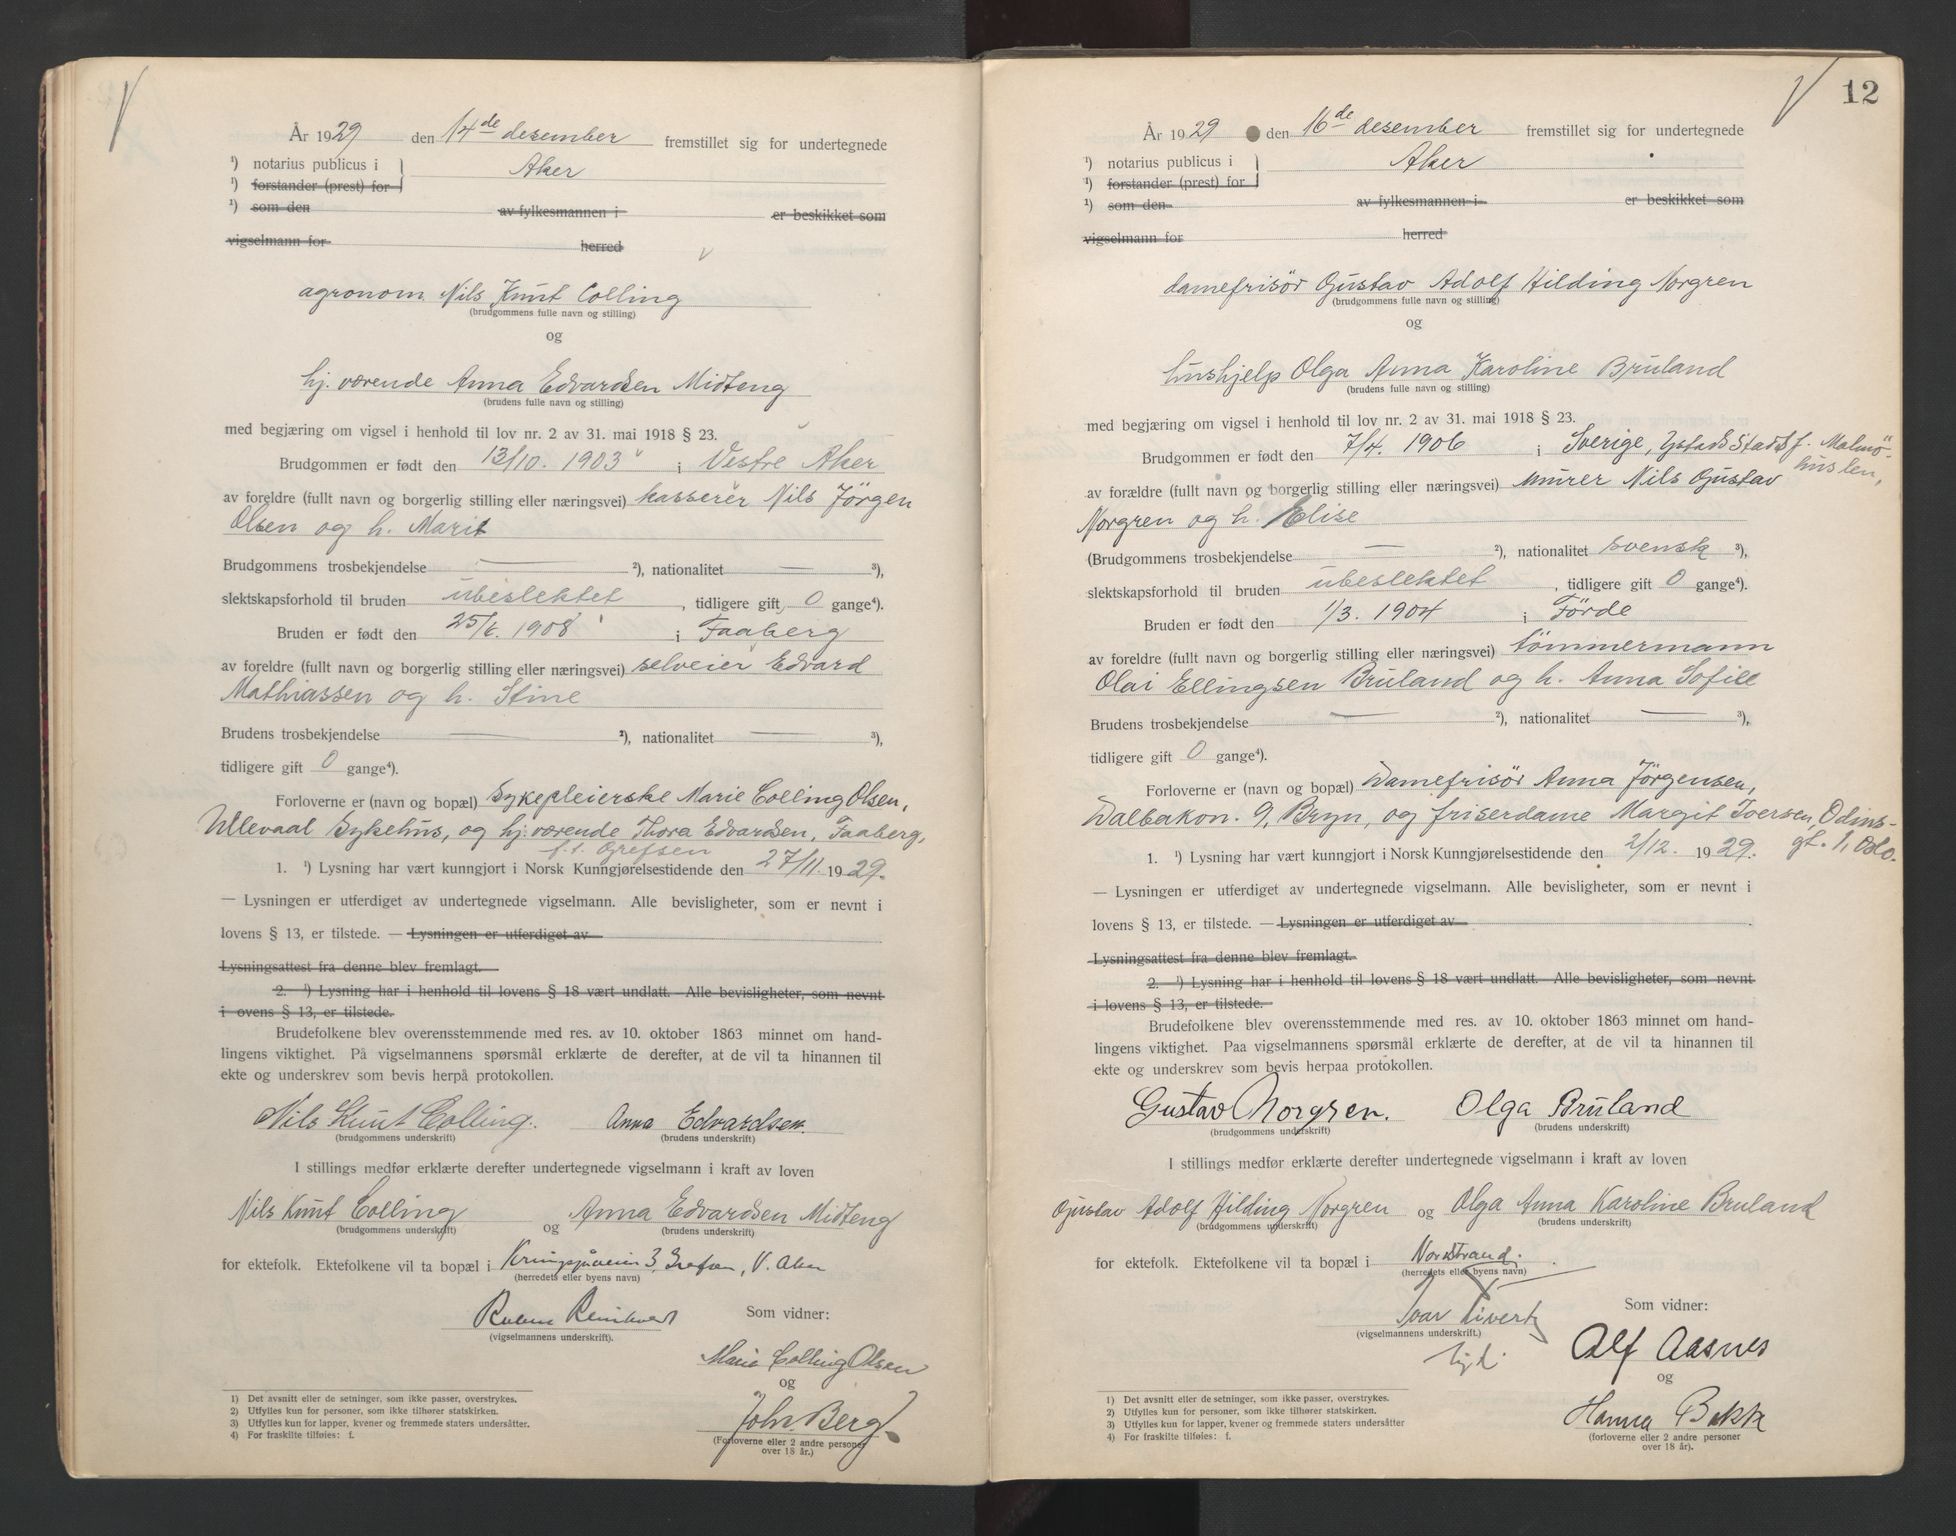 År 1929 den 14de desember fremstillet sig for undertegnede
¹) notarius publicus i Aker
¹) forstander (prest) for
¹) som den av fylkesmannen i er beskikket som
vigselmann for herred
agronom Nils Knut Colling
(brudgommens fulle navn og stilling)
og
hj. værende Anna Edvardsen Midteng
(brudens fulle navn og stilling)
med begjæring om vigsel i henhold til lov nr. 2 av 31. mai 1918 § 23.
Brudgommen er født den 13/10. 1903 i Vestre Aker
av foreldre (fullt navn og borgerlig stilling eller næringsvei) kasserer Nils Jörgen
Olsen og h. Marit
Brudgommens trosbekjendelse — ²), nationalitet — ³),
slektskapsforhold til bruden ubeslektet, tidligere gift 0 gange⁴).
Bruden er født den 25/6. 1908 i Faaberg
av foreldre (fullt navn og borgerlig stilling eller næringsvei) selveier Edvard
Mathiassen og h. Stine
Brudens trosbekjendelse — ²), nationalitet — ³),
tidligere gift 0 gange⁴).
Forloverne er (navn og bopæl) Sykepleierske Marie Colling Olsen,
Ullevaal Sykehus, og hj. værende Thora Edvardsen, Faaberg,
f. t. Grefsen
1. ¹) Lysning har vært kunngjort i Norsk Kunngjørelsestidende den 27/11. 1929.
— Lysningen er utferdiget av undertegnede vigselmann. Alle bevisligheter, som er nevnt i
lovens § 13, er tilstede. — Lysningen er utferdiget av
Lysningsattest fra denne blev fremlagt.
2. ¹) Lysning har i henhold til lovens § 18 vært undlatt. Alle bevisligheter, som nevnt
i ovens § 13, er tilstede.
Brudefolkene blev overensstemmende med res. av 10. oktober 1863 minnet om hand-
lingens viktighet. På vigselmannens spørsmål erklærte de derefter, at de vil ta hinannen til
ekte og underskrev som bevis herpå protokollen.
Nils Knut Colling. Anna Edvardsen.
(brudgommens underskrift) (brudens underskrift)
I stillings medfør erklærte derefter undertegnede vigselmann i kraft av loven
Nils Knut Colling og Anna Edvardsen Midteng
(brudgommens underskrift) (brudens underskrift)
for ektefolk. Ektefolkene vil ta bopæl i Kringsjåveien 3, Grefsen, V. Aker
(herredets eller byens navn)
Som vidner:
(vigselmannens underskrift).
Marie Colling Olsen
og
John Berg
(Forloverne eller 2 andre personer
over 18 år.)
1) Det avsnitt eller de setninger, som ikke passer, overstrykes.
2) Utfylles kun for personer, som ikke tilhører statskirken.
3) Utfylles kun for lapper, kvener og fremmede staters undersåtter.
4) For fraskilte tilføies: f.
12
År 1929 den 16de desember fremstillet sig for undertegnede
¹) notarius publicus i Aker
¹) forstander (prest) for
¹) som den av fylkesmannen i er beskikket som
vigselmann for herred
damefrisör Gustav Adolf Hilding Norgren
(brudgommens fulle navn og stilling)
og
hushjelp Olga Anna Karoline Bruland
(brudens fulle navn og stilling)
med begjæring om vigsel i henhold til lov nr. 2 av 31. mai 1918 § 23.
Brudgommen er født den 7/4. 1906 i Sverige, Ystads Stadsf. Malmö-
huslen,
av forældre (fullt navn og borgerlig stilling eller næringsvei) murer Nils Gustav
Norgren og h. Elise
(Brudgommens trosbekjendelse — ²), nationalitet svensk ³),
slektskapsforhold til bruden ubeslektet, tidligere gift 0 gange⁴).
Bruden er født den 1/3. 1904 i Förde
av foreldre (fullt navn og borgerlig stilling eller næringsvei) tömmermann
Olai Ellingsen Bruland og h. Anna Sofie
Brudens trosbekjendelse — ²), nationalitet — ³),
tidligere gift 0 gange⁴).
Forloverne er (navn og bopæl) Damefrisör Anna Jörgensen,
Dalbakvn. 9, Bryn, og friserdame Margit Iversen, Odins-
gt. 1, Oslo.
1. ¹) Lysning har vært kunngjort i Norsk Kunngjørelsestidende den 2/12. 1929.
— Lysningen er utferdiget av undertegnede vigselmann. Alle bevisligheter, som er nevnt i
lovens § 13, er tilstede. — Lysningen er utferdiget av
Lysningsattest fra denne blev fremlagt.
2. ¹) Lysning har i henhold til lovens § 18 vært undlatt. Alle bevisligheter, som nevnt
i lovens § 13, er tilstede.
Brudefolkene blev overensstemmende med res. av 10. oktober 1863 minnet om hand-
lingens viktighet. Paa vigselmannens spørsmål erklærte de derefter, at de vil ta hinannen til
ekte og underskrev som bevis herpaa protokollen.
Gustav Norgren. Olga Bruland
(brudgommens underskrift) (brudens underskrift)
I stillings medfør erklærte derefter undertegnede vigselmann i kraft av loven
Gustav Adolf Hilding Norgren og Olga Anna Karoline Bruland
(brudgommens underskrift) (brudens underskrift)
for ektefolk. Ektefolkene vil ta bopæl i Nordstrand.
(herredets eller byens navn)
Som vidner:
Ivar
(vigselmannens underskrift.)
Alf Aasnes
og
Hanna Bakk
(forloverne eller 2 andre personer
over 18 år).
1) Det avsnitt eller de setninger, som ikke passer, overstrykes.
2) Utfylles kun for personer, som ikke tilhører statskirken.
3) Utfylles kun for lapper, kvener og fremmede staters undersåtter
4) For fraskilte tilføies: f.